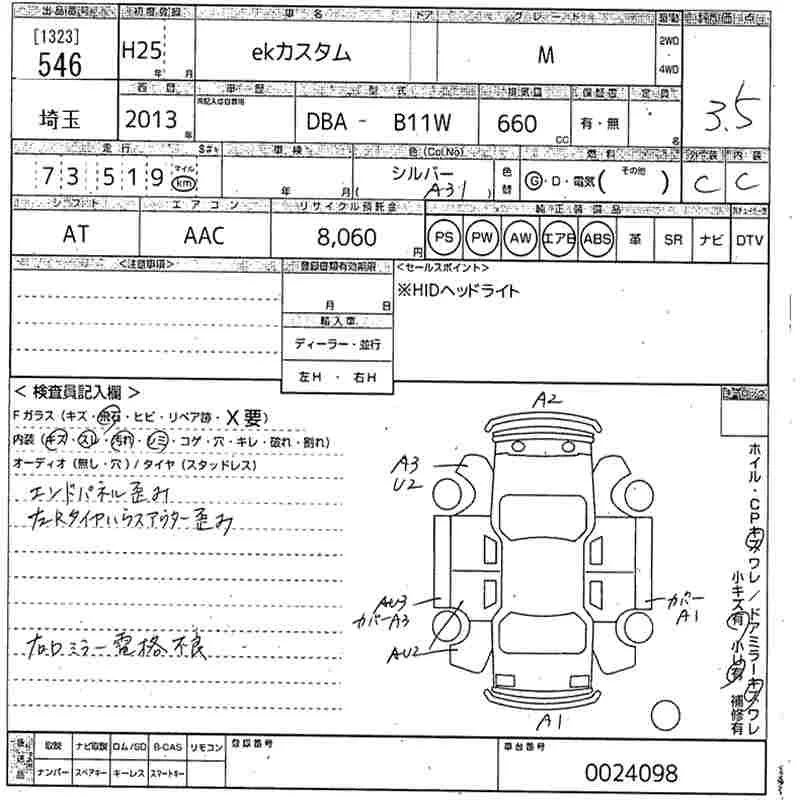 出品番号 初度登録 車名 ドア グレード 駆動 評価点
[1323]
546 H25 年 月 ekカスタム M 2WD 4WD 3.5
西暦 車歴 型式 排気量 保証書 定員
埼玉 2013 年 DBA - B11W 660 CC 有・無 名
走行 車検 色(Col,No) 燃料 外装 内装
73,519 マイル km 年 月 シルバー ( A31 ) 色替 G・D・電気( その他 ) C C
シフト エアコン リサイクル預託金 純正装備品
AT AAC 8,060 円 PS PW AW エアB ABS 革 SR ナビ DTV
<注意事項> 登録書類有効期限 <セールスポイント>
月 日 ※HIDヘッドライト
輸入車
ディーラー・並行
左H ・ 右H
< 検査員記入欄 >
Fガラス (キズ・飛石・ヒビ・リペア跡・X要)
内装 (キズ・スレ・汚れ・シミ・コゲ・穴・キレ・破れ・割れ)
オーディオ (無し・穴) / タイヤ (スタッドレス)
エンドパネル歪み
左Rタイヤハウスアウター歪み
左ロミラー電格不良
A2
A3
U2
AU3
カバーA3
AU2
カバー
A1
A1
ホイル・CPキズワレ/ドアミラーキズワレ
小キズ有 小U有 補修有
後送品 取説 ナビ取説 ロム/SD B-CAS リモコン 登録番号 車台番号
ナンバー スペアキー キーレス スマートキー 0024098